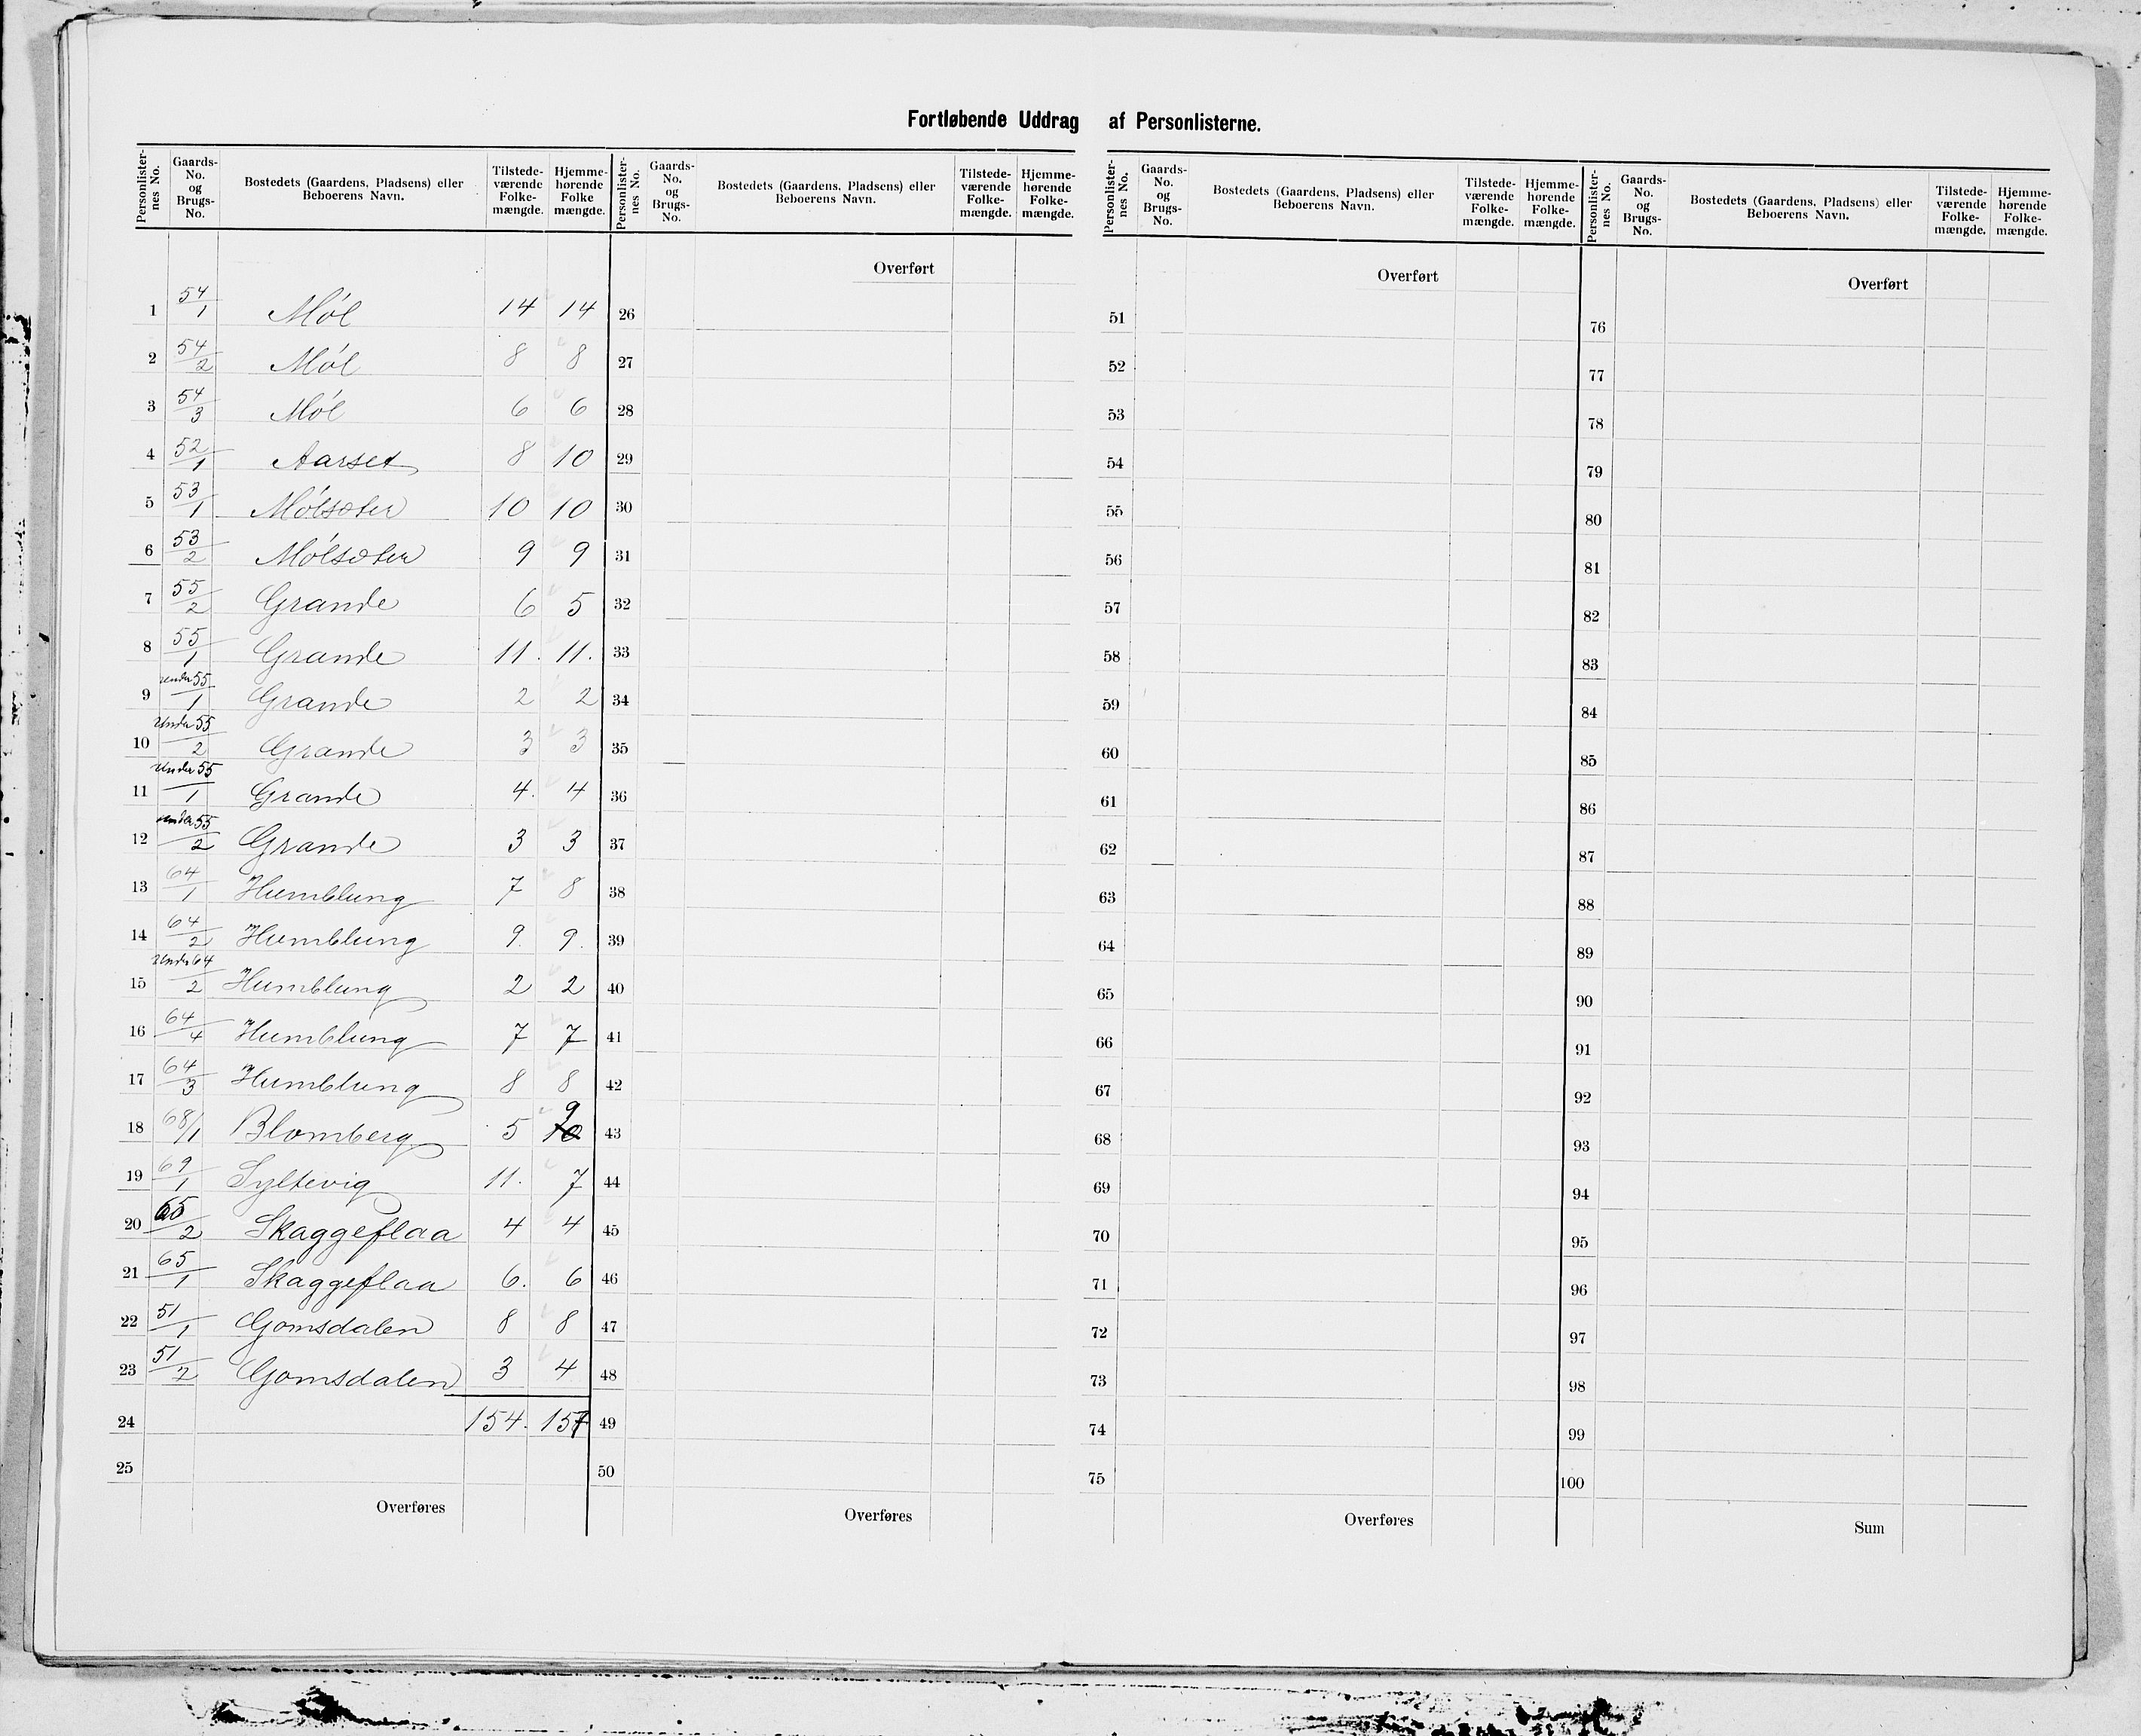 Fortløbende Uddrag af Personlisterne.
Personlister-nes No. Gaards-No. og Brugs-No. Bostedets (Gaardens, Pladsens) eller Beboerens Navn. Tilstede-værende Folke-mængde. Hjemme-hørende Folke mængde.
1 54/1 Møl 14 14
2 54/2 Møl 8 8
3 54/3 Møl 6 6
4 52/1 Aarset 8 10
5 53/1 Mølsæter 10 10
6 53/2 Mølsæter 9 9
7 55/2 Grande 6 5
8 55/1 Grande 11. 11.
9 under 55/1 Grande 2 2
10 Under 55/2 Grande 3 3
11 Under 55/1 Grande 4. 4
12 under 55/2 Grande 3 3
13 64/1 Humblung 7 8
14 64/2 Humblung 9. 9.
15 Under 64/2 Humblung 2 2
16 64/4 Humblung 7 7
17 64/3 Humblung 8 8
18 68/1 Blomberg 5 9
19 69/1 Syltevig 11. 7
20 65/2 Skaggeflaa 4 4
21 65/1 Skaggeflaa 6. 6
22 51/1 Gomsdalen 8 8
23 51/2 Gomsdalen 3 4
24 154. 157
25
Overføres
Personlister-nes No. Gaards-No. og Brugs-No. Bostedets (Gaardens, Pladsens) eller Beboerens Navn. Tilstede-værende Folke-mængde. Hjemme-hørende Folke-mængde.
Overført
26
27
28
29
30
31
32
33
34
35
36
37
38
39
40
41
42
43
44
45
46
47
48
49
50
Overføres
Personlister-nes No. Gaards-No. og Brugs-No. Bostedets (Gaardens, Pladsens) eller Beboerens Navn. Tilstede-værende Folke-mængde. Hjemme-hørende Folke-mængde.
Overført
51
52
53
54
55
56
57
58
59
60
61
62
63
64
65
66
67
68
69
70
71
72
73
74
75
Overføres
Personlister-nes No. Gaards-No. og Brugs-No. Bostedets (Gaardens, Pladsens) eller Beboerens Navn. Tilstede-værende Folke-mængde. Hjemme-hørende Folke-mængde.
Overført
76
77
78
79
80
81
82
83
84
85
86
87
88
89
90
91
92
93
94
95
96
97
98
99
100
Sum